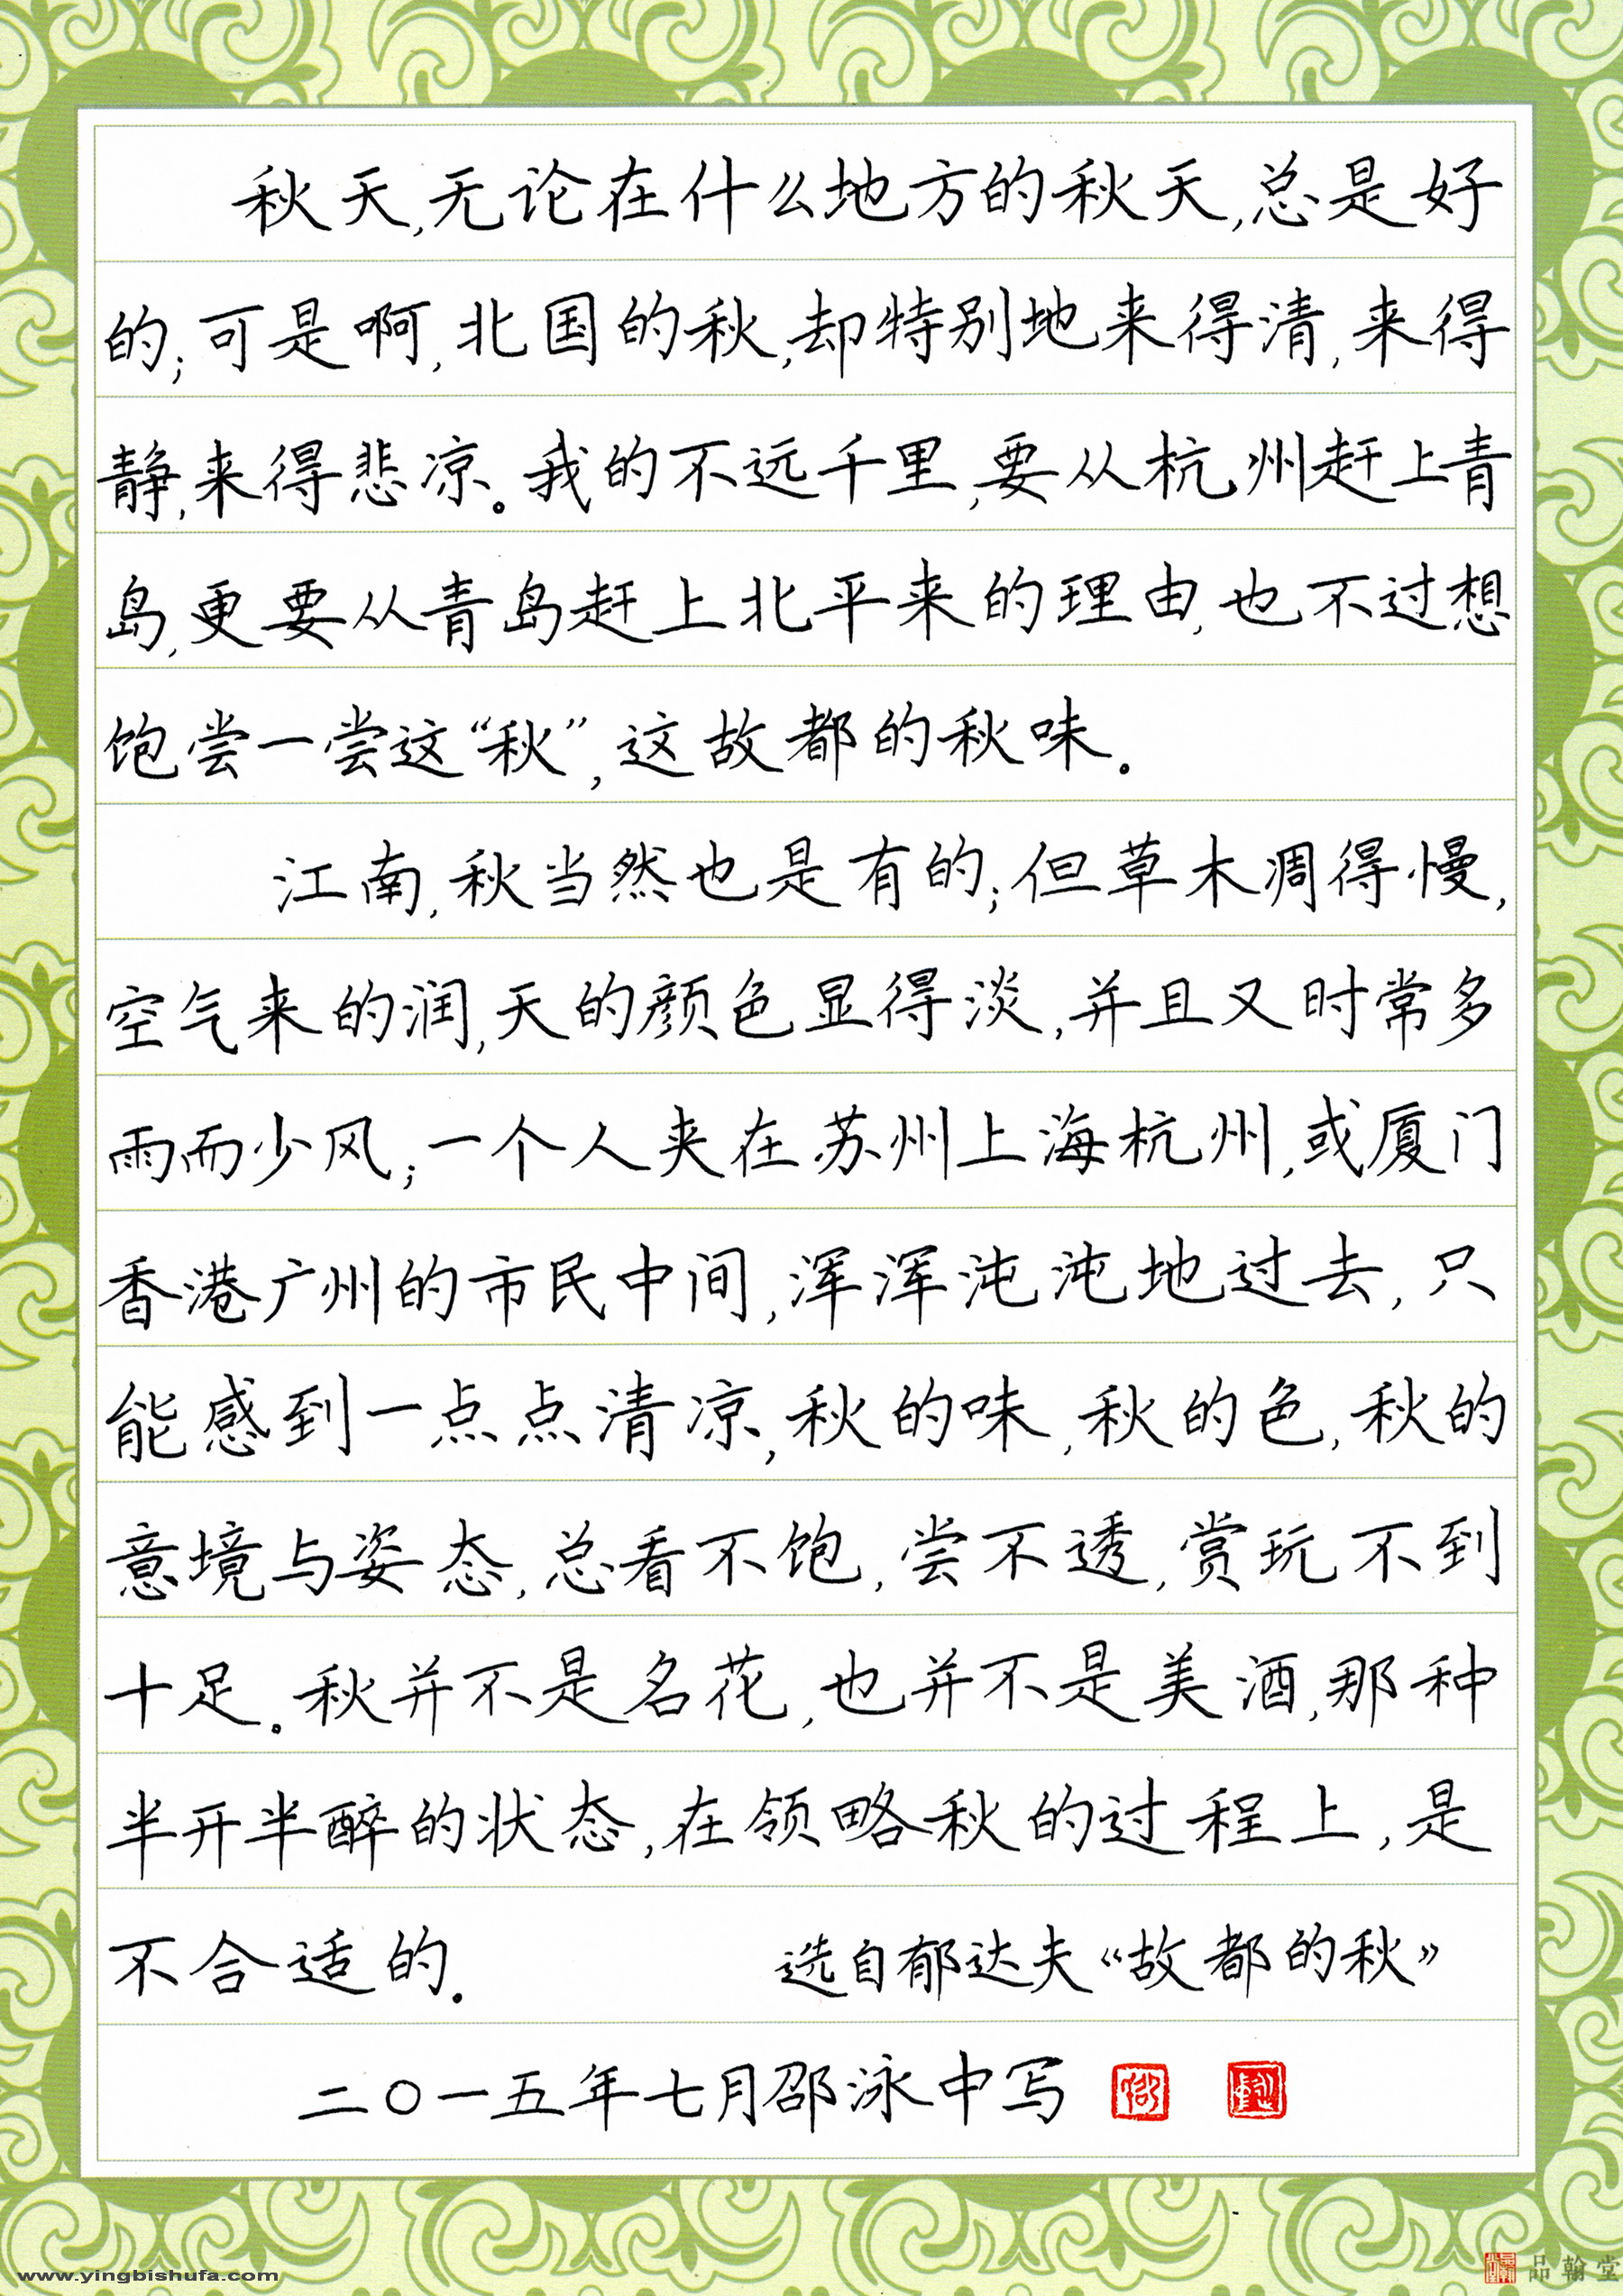 秋天,无论在什么地方的秋天,总是好
的;可是啊,北国的秋,却特别地来得清,来得
静,来得悲凉。我的不远千里,要从杭州赶上青
岛,更要从青岛赶上北平来的理由,也不过想
饱尝一尝这“秋”,这故都的秋味。
江南,秋当然也是有的;但草木凋得慢,
空气来的润,天的颜色显得淡,并且又时常多
雨而少风;一个人夹在苏州上海杭州,或厦门
香港广州的市民中间,浑浑沌沌地过去,只
能感到一点点清凉,秋的味,秋的色,秋的
意境与姿态,总看不饱,尝不透,赏玩不到
十足。秋并不是名花,也并不是美酒,那种
半开半醉的状态,在领略秋的过程上,是
不合适的。 选自郁达夫《故都的秋》
二〇一五年七月邵泳中写
www.yingbishufa.com
品翰堂